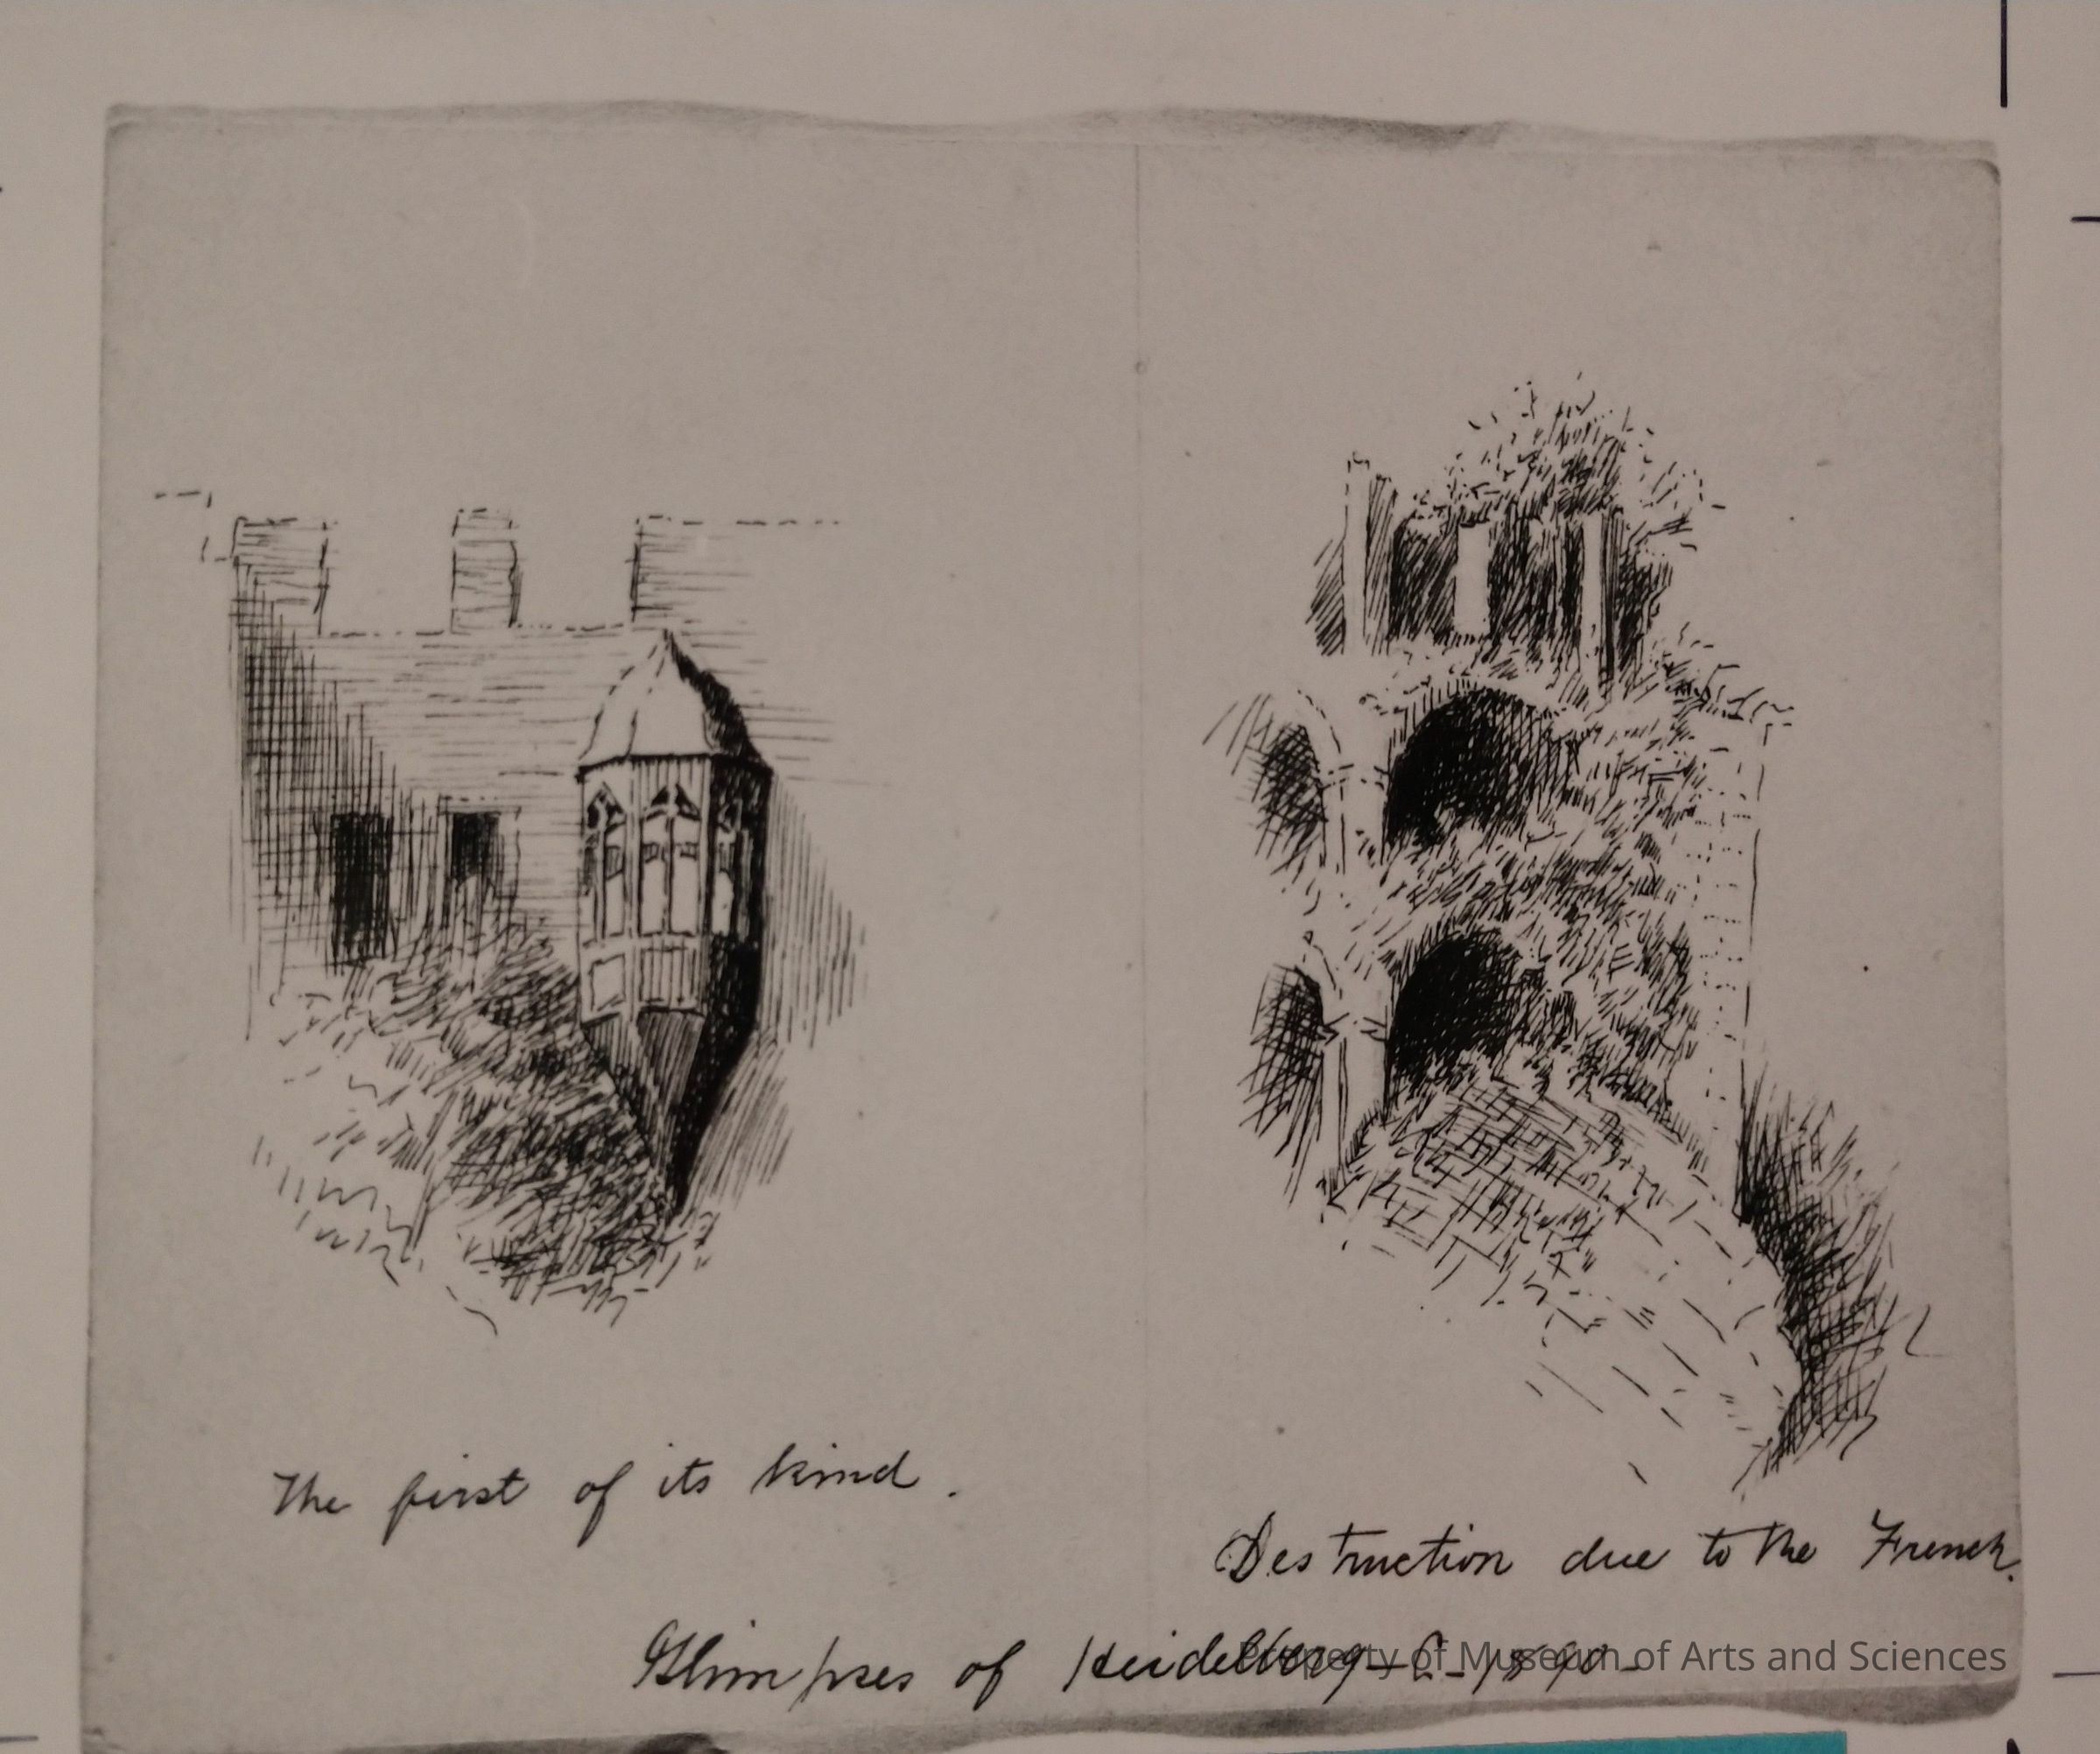 The first of its kind.
Destruction due to the French.
Glimpses of Heidelberg - 1890 -
Property of Museum of Arts and Sciences